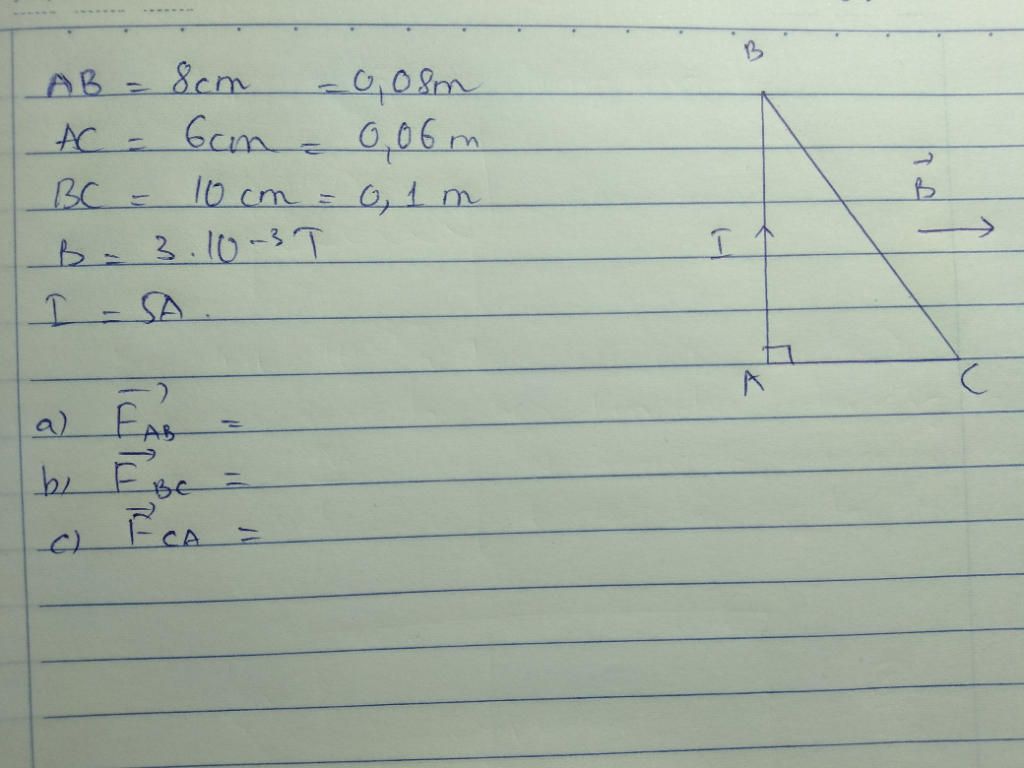 AB = 8cm = 0,08m
AC = 6cm = 0,06 m
BC = 10 cm = 0,1 m
B = 3.10⁻³ T
I = 5A.
a) F⃗_AB =
b) F⃗_BC =
c) F⃗_CA =
B
B⃗
I
A
C